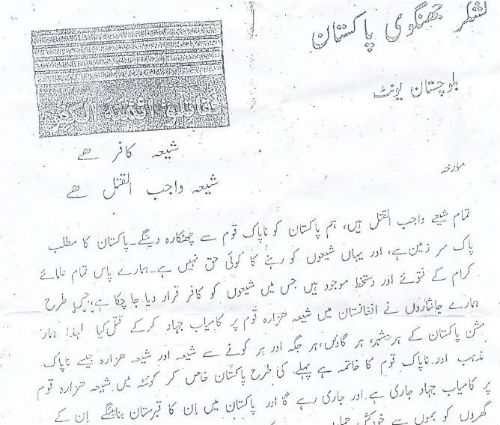 لشکر جھنگوی پاکستان
بلوچستان یونٹ
شیعہ کافر ھے
شیعہ واجب القتل ھے
مورخہ
تمام شیعے واجب القتل ہیں، ہم پاکستان کو ناپاک قوم سے چھٹکارہ دینگے۔ پاکستان کا مطلب
پاک سر زمین ہے، اور یہاں شیعوں کو رہنے کا کوئی حق نہیں ہے۔ ہمارے پاس تمام علمائے
کرام کے فتوئے اور دستخط موجود ہیں جس میں شیعوں کو کافر قرار دیا جا چکا ہے، جس طرح
ہمارے جانثاروں نے افغانستان میں شیعہ ھزارہ قوم پر کامیاب جہاد کرکے قتل کیا لہذا ہمارا
مشن پاکستان کے ہر شہر، ہر گاؤں، ہر جگہ اور ہر کونے سے شیعہ اور شیعہ ھزارہ جیسے ناپاک
مذہب اور ناپاک قوم کا خاتمہ ہے پہلے کی طرح پاکستان خاص کر کوئٹہ میں شیعہ ھزارہ قوم
پر کامیاب جہاد جاری ہے اور جاری رہے گا اور پاکستان میں اِن کا قبرستان بنائینگے اِن کے
گھروں کو بموں سے خودکش